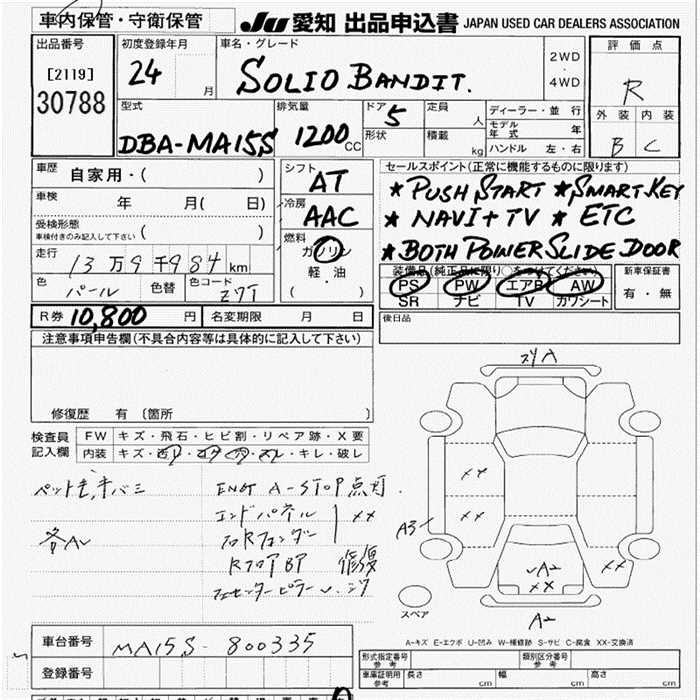 車内保管・守衛保管
JU 愛知 出品申込書 JAPAN USED CAR DEALERS ASSOCIATION
出品番号
[2119]
30788
初度登録年月
24 月
車名・グレード
SOLIO BANDIT.
2WD
・
4WD
評価点
R
外装 内装
B C
型式
DBA-MA15S
排気量
1200 CC
ドア 5
形状
定員 人
積載 kg
ディーラー・並行
モデル年式 年
ハンドル 左・右
車歴
自家用・( )
車検 年 月( 日)
受検形態
車検付きのみ記入して下さい ( )
走行
13万9千984km
色 パール
色替
色コード Z7T
シフト
AT
冷房
AAC
燃料
ガソリン
軽・油
( )
セールスポイント(正常に機能するものに限ります)
★ PUSH START ★ SMART KEY
★ NAVI + TV ★ ETC
★ BOTH POWER SLIDE DOOR
装備品(純正品に限り○をつけてください)
PS PW エアB AW
SR ナビ TV カワシート
新車保証書
有・無
R券 10,800 円
名変期限 月 日
後日品
注意事項申告欄(不具合内容等は具体的に記入して下さい)
修復歴 有 〔箇所 〕
検査員
記入欄
FW キズ・飛石・ヒビ割・リペア跡・X要
内装 キズ・
・キレ・破レ
ENGT A-STOP点灯.
エンドパネル
XX
修復
各AU
A
XX
XX
A3
XX
A2
XX
A2
スペア
A-キズ E-エクボ U-凹み W-補修跡 S-サビ C-腐食 XX-交換済
車台番号 MA15S-800335
登録番号
形式指定番号
参考
類別区分番号
参考
車庫証明用
参考
長さ cm
幅 cm
高さ cm